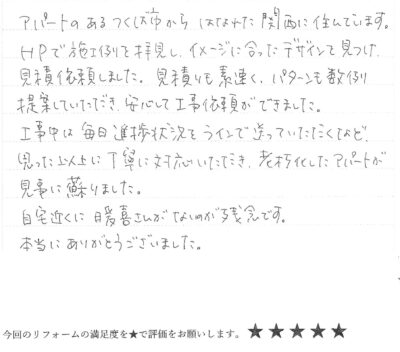 アパートのある つくば市から はなれた 関西に住んでいます。
HPで施工例を拝見し、イメージに合ったデザインを見つけ、
見積依頼しました。見積りも素速く、パターンも数例
提案していただき、安心して工事依頼ができました。
工事中は毎日進捗状況をラインで送っていただくなど、
思った以上に丁寧に対応いただき、老朽化したアパートが
見事に蘇りました。
自宅近くに暖喜さんがないのが残念です。
本当にありがとうございました。
今回のリフォームの満足度を★で評価をお願いします。★★★★★